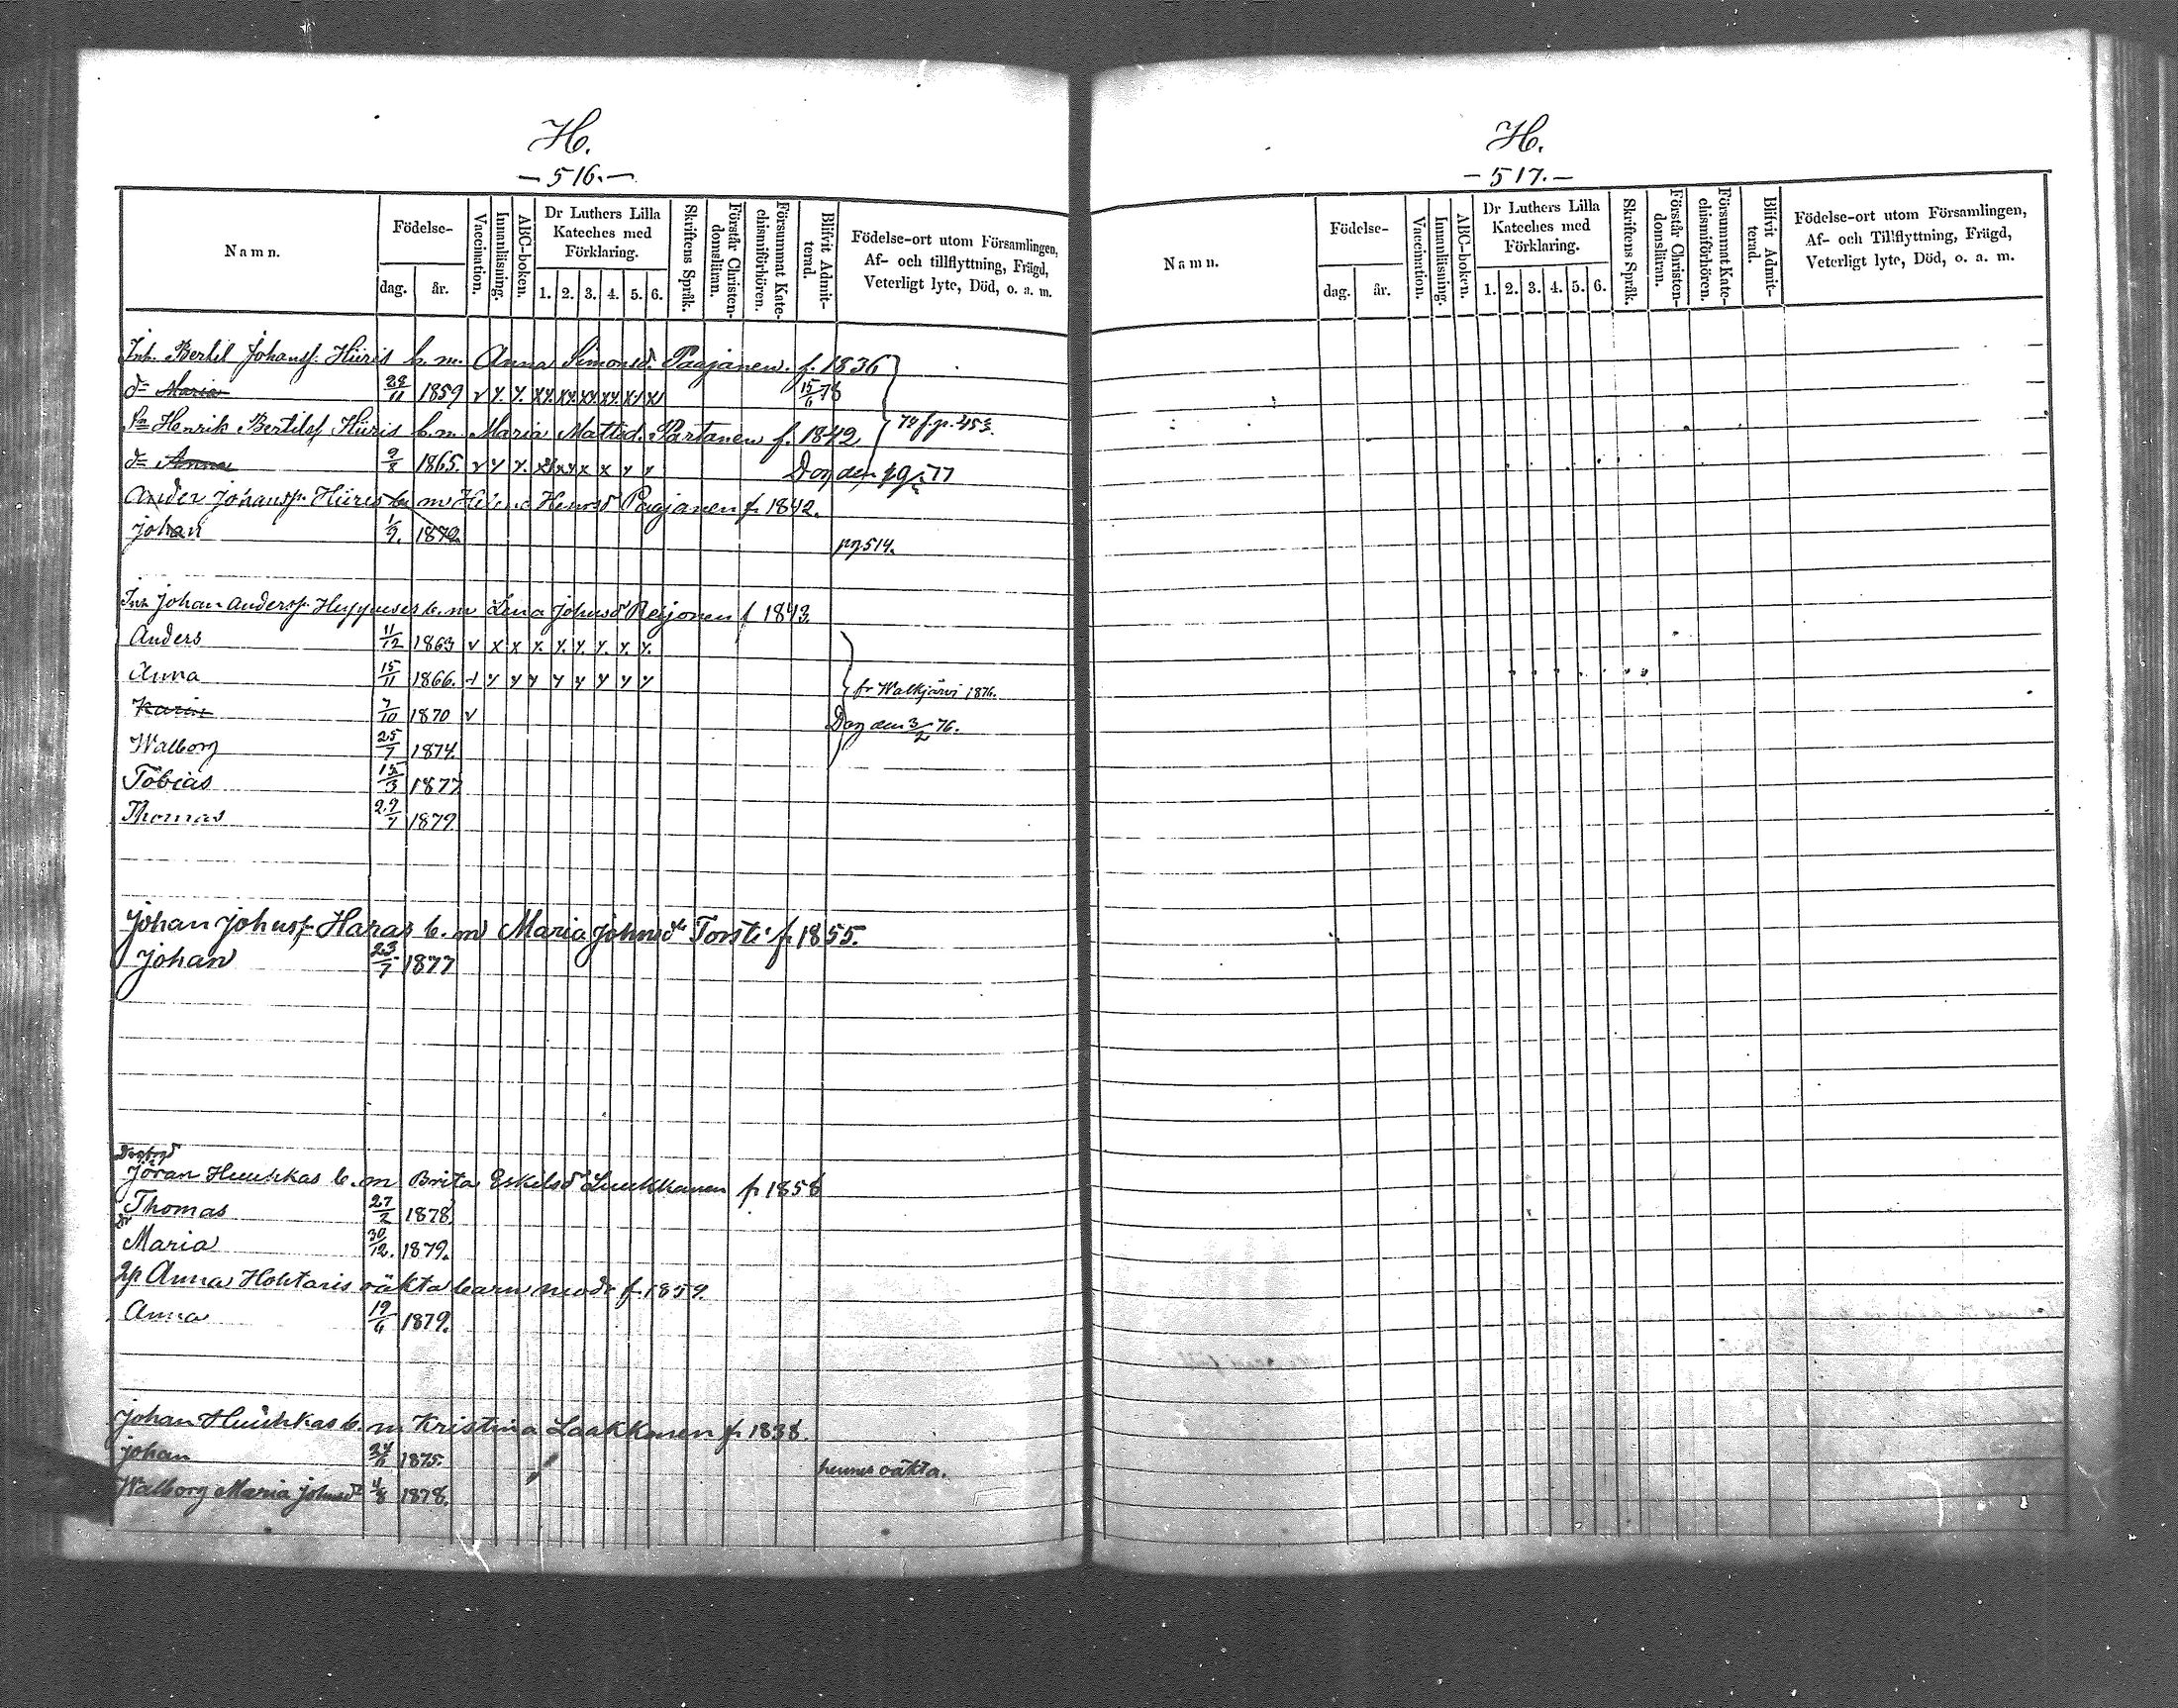 H.
— 516. —
Namn.
Födelse-
dag.
år.
Vaccination.
Innanläsning.
ABC-boken.
Dr Luthers Lilla
Kateches med
Förklaring.
1. 2. 3. 4. 5. 6.
Skriftens Språk.
Förstår Christen-
domsläran.
Försummat Kate-
chismiförhören.
Blifvit Admit-
terad.
Födelse-ort utom Församlingen,
Af- och tillflyttning, Frägd,
Veterligt lyte, Död, o. a. m.
Inh. Bertil Johansf. Hiiris h. m. Anna Simonsd. Paajanen. f. 1836
d= Maria 28/11 1859 15/6 78
Henrik Bertilsf Hiiris h. m. Maria Mattsd. Partanen f. 1842
d= Anna 9/8 1865.
Ander Johansf. Hiiris m Helena Henrsd Paajanen f. 1842.
Johan 1/9. 1872. pg 514.
Inh Johan Andersf. b. m Lena Johnsd Reijonen f 1843.
Anders 11/12 1863
Anna 15/11 1866. fr Walkjärvi 1876.
Karin 7/10 1870 Dog den 3/2 76.
Walborg 25/7 1874.
Tobias 15/3 1877
Thomas 22/7 1879.
Johan Johnsf. Haras b. m Maria Johnsd Torsti f. 1855.
Johan 23/7 1877
Jöran Huuhkas b. m Brita Eskilsd Luukkanen f. 1858
Thomas 27/2 1878
Maria 30/12. 1879.
Anna Hohtaris oäkta barn modr f. 1859.
Anna 19/6 1879.
Johan Huuhkas b. m Kristina Laakkonen f. 1838.
Johan 1875. hennes oäkta.
Walborg Maria Johnsd 4/8 1878.
H.
— 517. —
Namn.
Födelse-
dag.
år.
Vaccination.
Innanläsning.
ABC-boken.
Dr Luthers Lilla
Kateches med
Förklaring.
1. 2. 3. 4. 5. 6.
Skriftens Språk.
Förstår Christen-
domsläran.
Försummat Kate-
chismiförhören.
Blifvit Admit-
terad.
Födelse-ort utom Församlingen,
Af- och Tillflyttning, Frägd,
Veterligt lyte, Död, o. a. m.